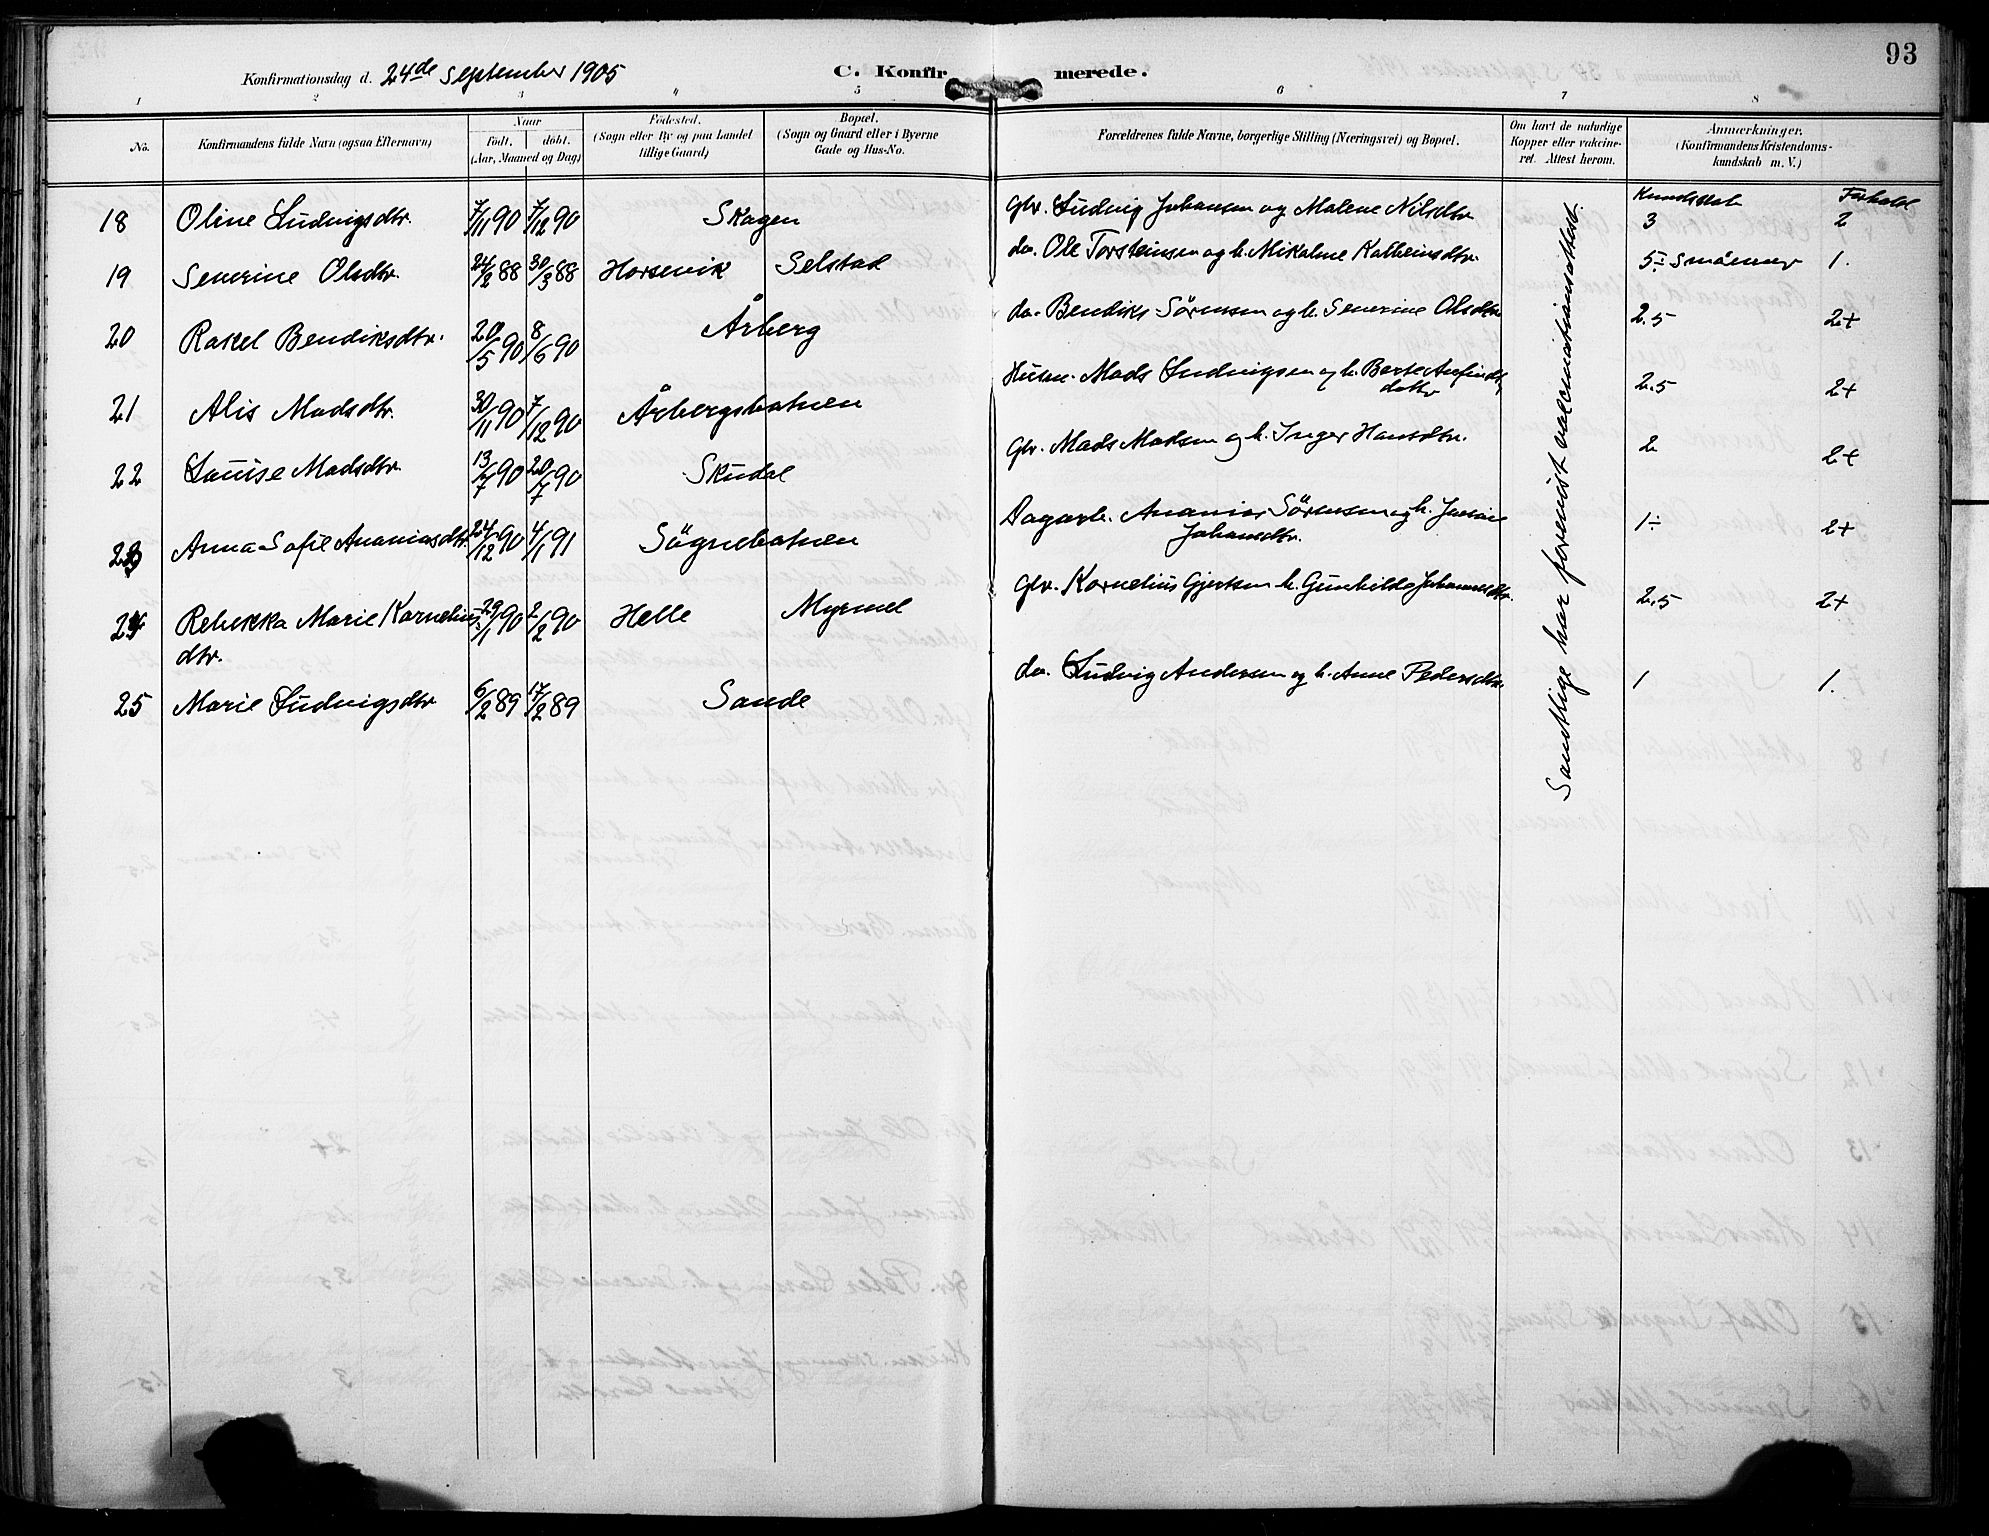 93
Konfirmationsdag d. 24de September 1905 C. Konfirmerede.
1 2 3 4 5 6 7 8
No. Konfirmandens fulde Navn (ogsaa Efternavn) Naar født. døbt. (Aar, Maaned og Dag) Fødested. (Sogn eller By og paa Landet tillige Gaard) Bopæl. (Sogn og Gaard eller i Byerne Gade og Hus-No. Forældrenes fulde Navne, borgerlige Stilling (Næringsvei) og Bopæl. Om havt de naturlige Kopper eller vakcineret. Attest herom. Anmærkninger. (Konfirmandens Kristendomskundskab m. V.)
Kundskab Forhold
18 Oline Ludvigsdtr. 7/11 90 7/12 90 Skagen Gbr. Ludvig Johansen og Malene Nilsdtr. 3 2
19 Severine Olsdtr. 24/2 88 30/3 88 Horsevik Selstad do. Ole Torsteinsen og h. Mikaline Kathrinsdtr. 5÷ 1.
20 Rakel Bendiksdtr. 20/5 90 8/6 90 Årberg do. Bendiks Sörensen og h. Severine Olsdtr. 2.5 2+
21 Alis Madsdtr. 30/11 90 7/12 90 Årbergsbotnen Husm. Mads Ludvigsen og h. Berte Arefindsdottr 2.5 2+
22 Louise Madsdtr. 13/7 90 20/7 90 Skudal Gbr. Mads Madsen og h. Inger Hansdtr. 2 2+
23 Anna Sofie Ananiasdtr. 24/12 90 4/1 91 Sögnebotnen Dagarb. Ananias Sörensen og h. Johansdtr. 1÷ 2+
24 Rebekka Marie Kornelius
dtr. 29/1 90 2/2 90 Helle Myrmel Gbr. Kornelius Gjertsen h. Gunhilde Johannesdtr. 2.5 2+
25 Marie Ludvigsdtr 6/2 89 17/2 89 Sande do. Ludvig Andersen og h. Anne Pedersdtr. 1 1.
Samtlige har forevist vaccinationsattest.